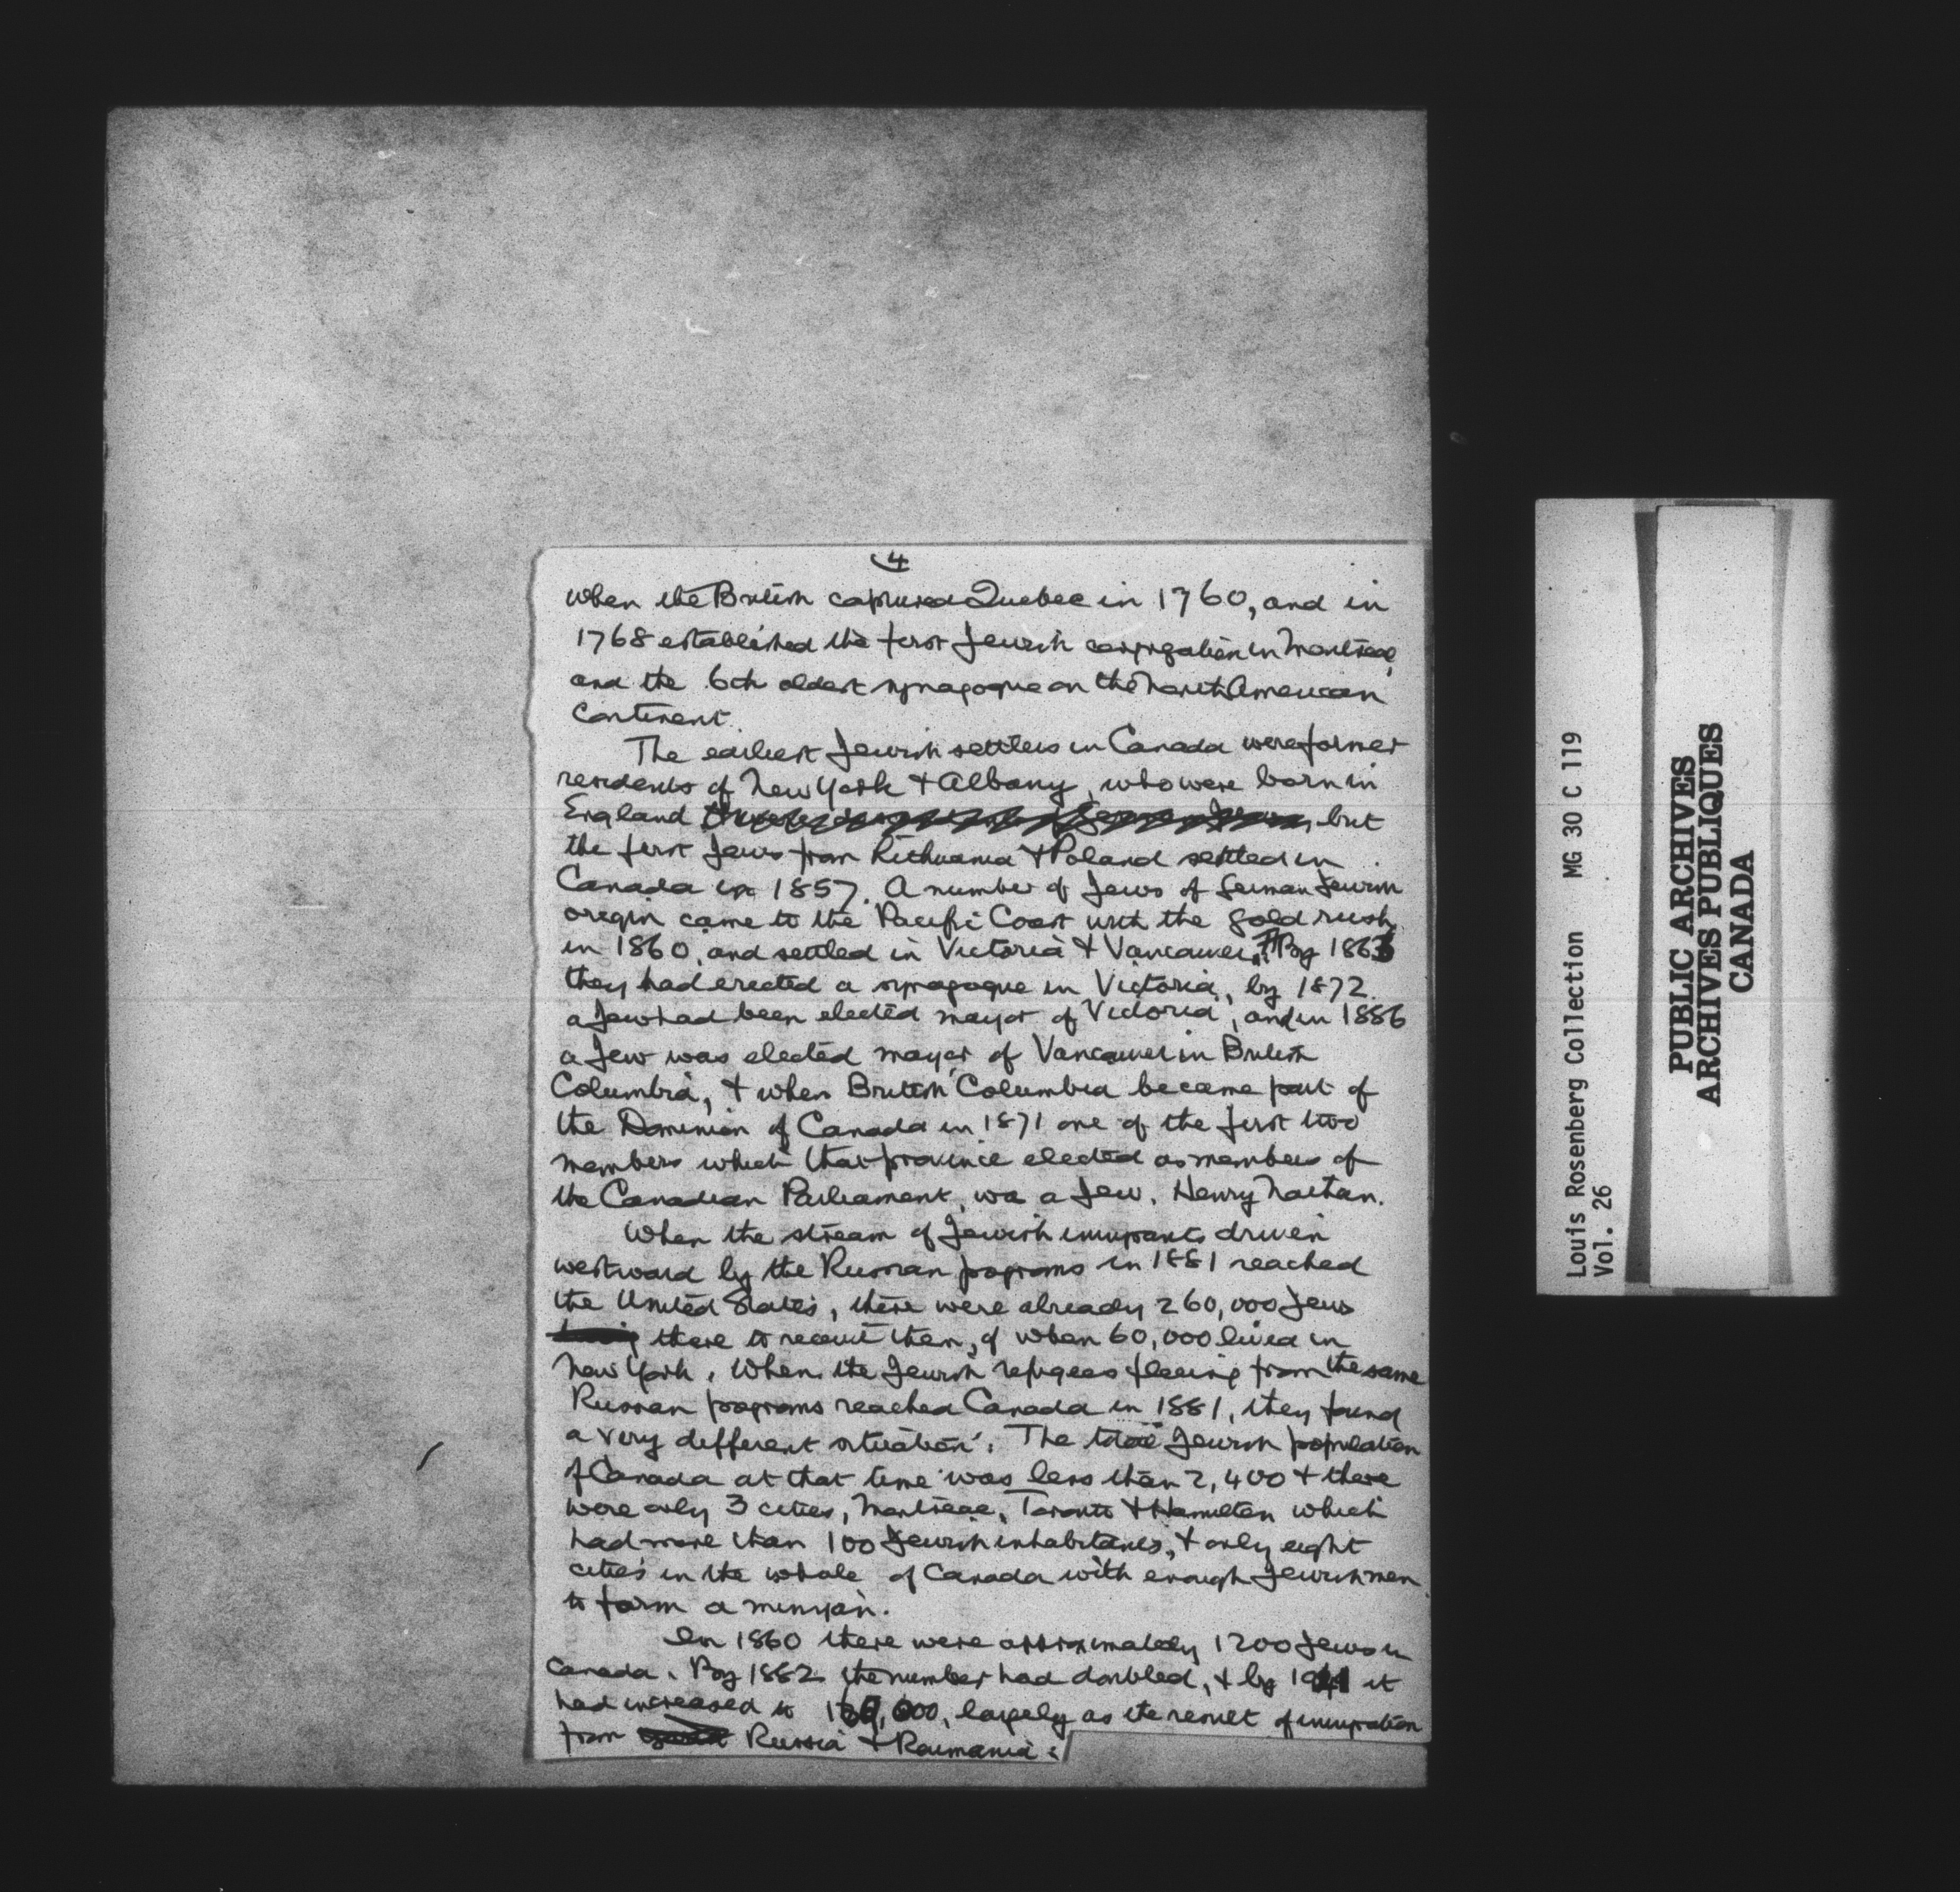 4
when the British captured Quebec in 1760, and in
1768 established the first Jewish congregation in Montreal,
and the 6th oldest synagogue on the North American
Continent.
The earliest Jewish settlers in Canada were former
residents of New York & Albany, who were born in
England but
the first Jews from Lithuania & Poland settled in
Canada in 1857. A number of Jews of German Jewish
origin came to the Pacific Coast with the gold rush
in 1860, and settled in Victoria & Vancouver. By 1863
they had erected a synagogue in Victoria, by 1872
a Jew had been elected mayor of Victoria, and in 1886
a Jew was elected mayor of Vancouver in British
Columbia, & when British Columbia became part of
the Dominion of Canada in 1871 one of the first two
members which that province elected as members of
the Canadian Parliament, wa a Jew, Henry Nathan.
When the stream of Jewish immigrants driven
westward by the Russian pogroms in 1881 reached
the United States, there were already 260,000 Jews
there to receive them, of whom 60,000 lived in
New York. When the Jewish refugees fleeing from the same
Russian pogroms reached Canada in 1881, they found
a very different situation. The total Jewish population
of Canada at that time was less than 2,400 & there
were only 3 cities, Montreal, Toronto & Hamilton which
had more than 100 Jewish inhabitants, & only eight
cities in the whole of Canada with enough Jewish men
to form a minyan.
In 1860 there were approximately 1200 Jews in
Canada. By 1882 the number had doubled, & by it
had increased to largely as the result of immigration
from Russia & Roumania.
Louis Rosenberg Collection MG 30 C 119
Vol. 26
PUBLIC ARCHIVES
ARCHIVES PUBLIQUES
CANADA